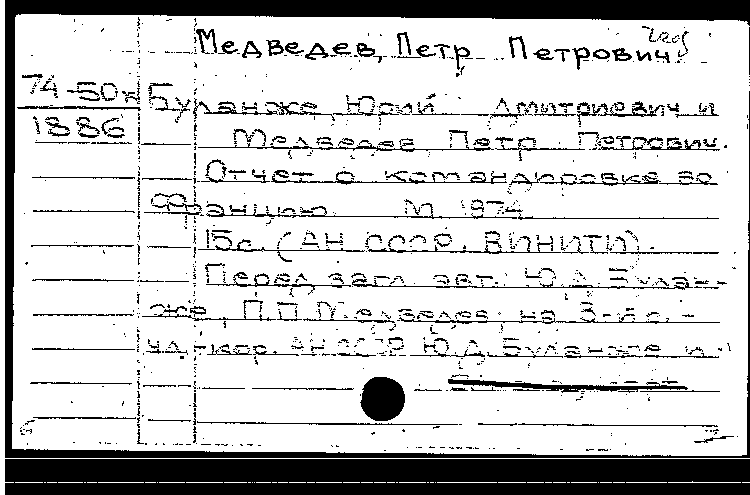 Медведев, Петр Петрович.
74-50к Буланже, Юрий Дмитриевич и
1886 Медведев, Петр Петрович.
Отчет о командировке во
Францию. М. 1974.
15с. (АН СССР. ВИНИТИ).
Перед загл. авт.: Ю.Д. Булан-
же, П.П. Медведев; на 3-й с. -
чл.-кор. АН СССР Ю.Д. Буланже и